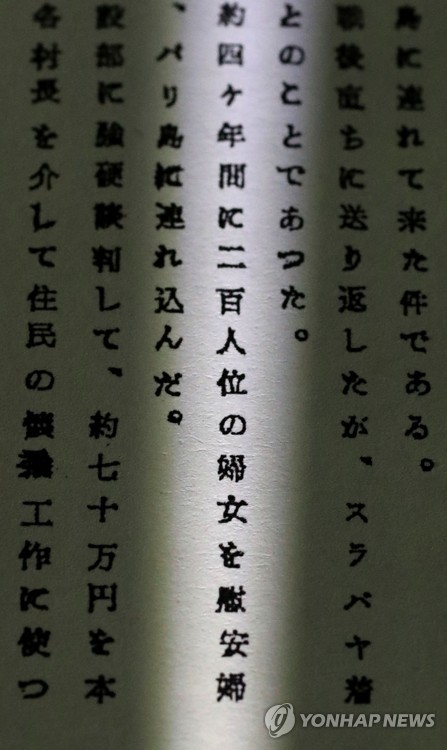 島に連れて来た件である。
戦後直ちに送り返したが、スラバヤ着
とのことであつた。
約四ケ年間に二百人位の婦女を慰安婦
、バリ島に連れ込んだ。
設部に強硬談判して、約七十万円を本
各村長を介して住民の懐柔工作に使つ
YONHAP NEWS